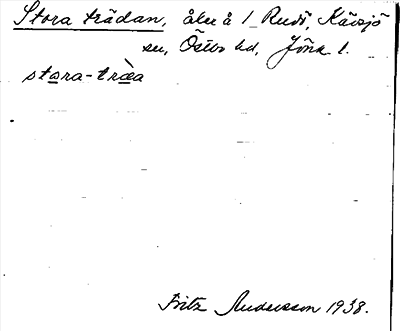 Stora trädan, åker å 1 Rud, Kävsjö
sn, Östbo hd, Jönk. l.
stora-träa
Fritz Andersson 1938.